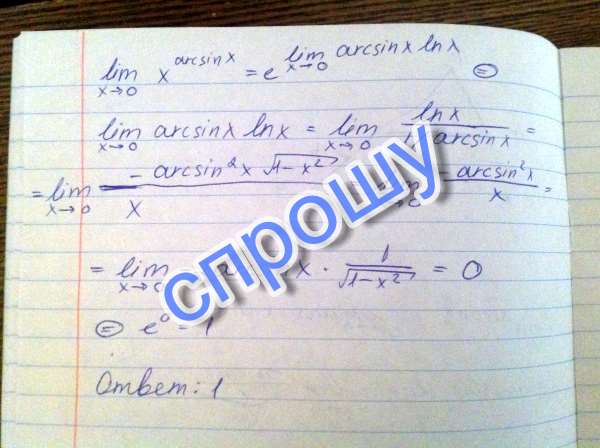 lim x→0 x^arcsin x = e^lim x→0 arcsin x ln x ⊜
lim x→0 arcsin x ln x = lim x→0 ln x / arcsin x =
= lim x→0 - arcsin²x √1-x² / x - arcsin²x / x =
= lim x · 1 / √1-x² = 0
⊜ e⁰ = 1
Ответ: 1
спрошу